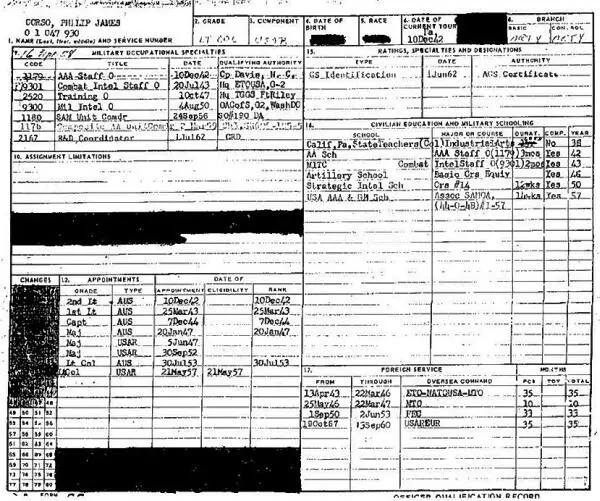 CORSO, PHILIP JAMES
O 1 047 930
1. NAME (Last, first, middle) AND SERVICE NUMBER
2. GRADE
LT COL
3. COMPONENT
USAR
4. DATE OF BIRTH
5. RACE
6. DATE OF CURRENT TOUR
10Dec42
BRANCH
BASIC
CON. AOL
ARTY
MILITARY OCCUPATIONAL SPECIALTIES
CODE TITLE DATE QUALIFYING AUTHORITY
1179 AAA Staff O 10Dec42 Cp Davis, N. C.
9301 Combat Intel Staff O 20Jul43 Hq ETOUSA, G-2
2520 Training O 1Oct47 Hq TGGS, FtRiley
9300 Mil Intel O 4Aug50 OACofS, G2, WashDC
1180 SAM Unit Comdr 24Sep56 SO#190 DA
1176
2167 R&D Coordinator 1Jul62 CRD
10. ASSIGNMENT LIMITATIONS
15. RATINGS, SPECIALTIES AND DESIGNATIONS
TYPE DATE AUTHORITY
GS Identification 1Jun62 ACS Certificate
CIVILIAN EDUCATION AND MILITARY SCHOOLING
SCHOOL MAJOR OR COURSE DURAT. COMP. YEAR
Calif, Pa, StateTeachers(Col) IndustrialArts No 38
AA Sch AAA Staff O(1179) 3mos Yes 42
MITC Combat IntelStaff O(9301) 2mos Yes 43
Artillery School Basic Crs Equiv Yes 46
Strategic Intel Sch Crs #14 12wks Yes 50
USA AAA & GM Sch Assoc SAMOA, 14wks Yes 57
(44-O-4B)#1-57
CHANGES
12. APPOINTMENTS DATE OF
GRADE TYPE APPOINTMENT ELIGIBILITY RANK
2nd Lt AUS 10Dec42 10Dec42
1st Lt AUS 25Mar43 25Mar43
Capt AUS 7Dec44 7Dec44
Maj AUS 20Jan47 20Jan47
Maj USAR 5Jun47
Maj USAR 30Sep52
Lt Col AUS 30Jul53 30Jul53
LtCol USAR 21May57 21May57
49 50 51 52
53 54 55 56
57 58 59 60
61 62 63 64
65 66 67 68
69 70 71 72
73 74 75 76
77 78 79 80
17. FOREIGN SERVICE MONTHS
FROM THROUGH OVERSEA COMMAND PCS TDY TOTAL
13Apr43 22Mar46 ETO-NATOUSA-MTO 35 35
25May46 22Mar47 MTO 10 10
1Sep50 2Jun53 FEC 33 33
19Oct57 13Sep60 USAREUR 35 35
OFFICER QUALIFICATION RECORD